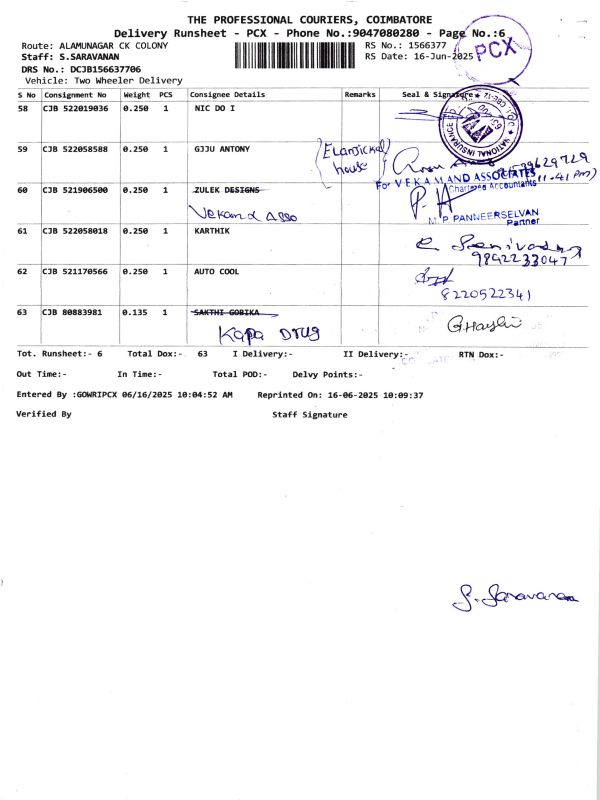 THE PROFESSIONAL COURIERS, COIMBATORE
Delivery Runsheet - PCX - Phone No.:9047080280 - Page No.:6
Route: ALAMUNAGAR CK COLONY
RS No.: 1566377
Staff: S.SARAVANAN
RS Date: 16-Jun-2025
PCX
DRS No.: DCJB156637706
Vehicle: Two Wheeler Delivery
S No Consignment No Weight PCS Consignee Details Remarks Seal & Signature
58 CJB 522019036 0.250 1 NIC DO I
NATIONAL INSURANCE
59 CJB 522058588 0.250 1 GJJU ANTONY
house
For VEKAM AND ASSOCIATES
Chartered Accountants
60 CJB 521906500 0.250 1 ZULEK DESIGNS
Vekand Asso
M P PANNEERSELVAN
Partner
61 CJB 522058018 0.250 1 KARTHIK
9842233047
62 CJB 521170566 0.250 1 AUTO COOL
8220522341
63 CJB 80883981 0.135 1 SAKTHI GOBIKA
Kapa Drug
Tot. Runsheet:- 6 Total Dox:- 63 I Delivery:- II Delivery:- RTN Dox:-
Out Time:- In Time:- Total POD:- Delvy Points:-
Entered By :GOWRIPCX 06/16/2025 10:04:52 AM Reprinted On: 16-06-2025 10:09:37
Verified By Staff Signature
S. Saravanan